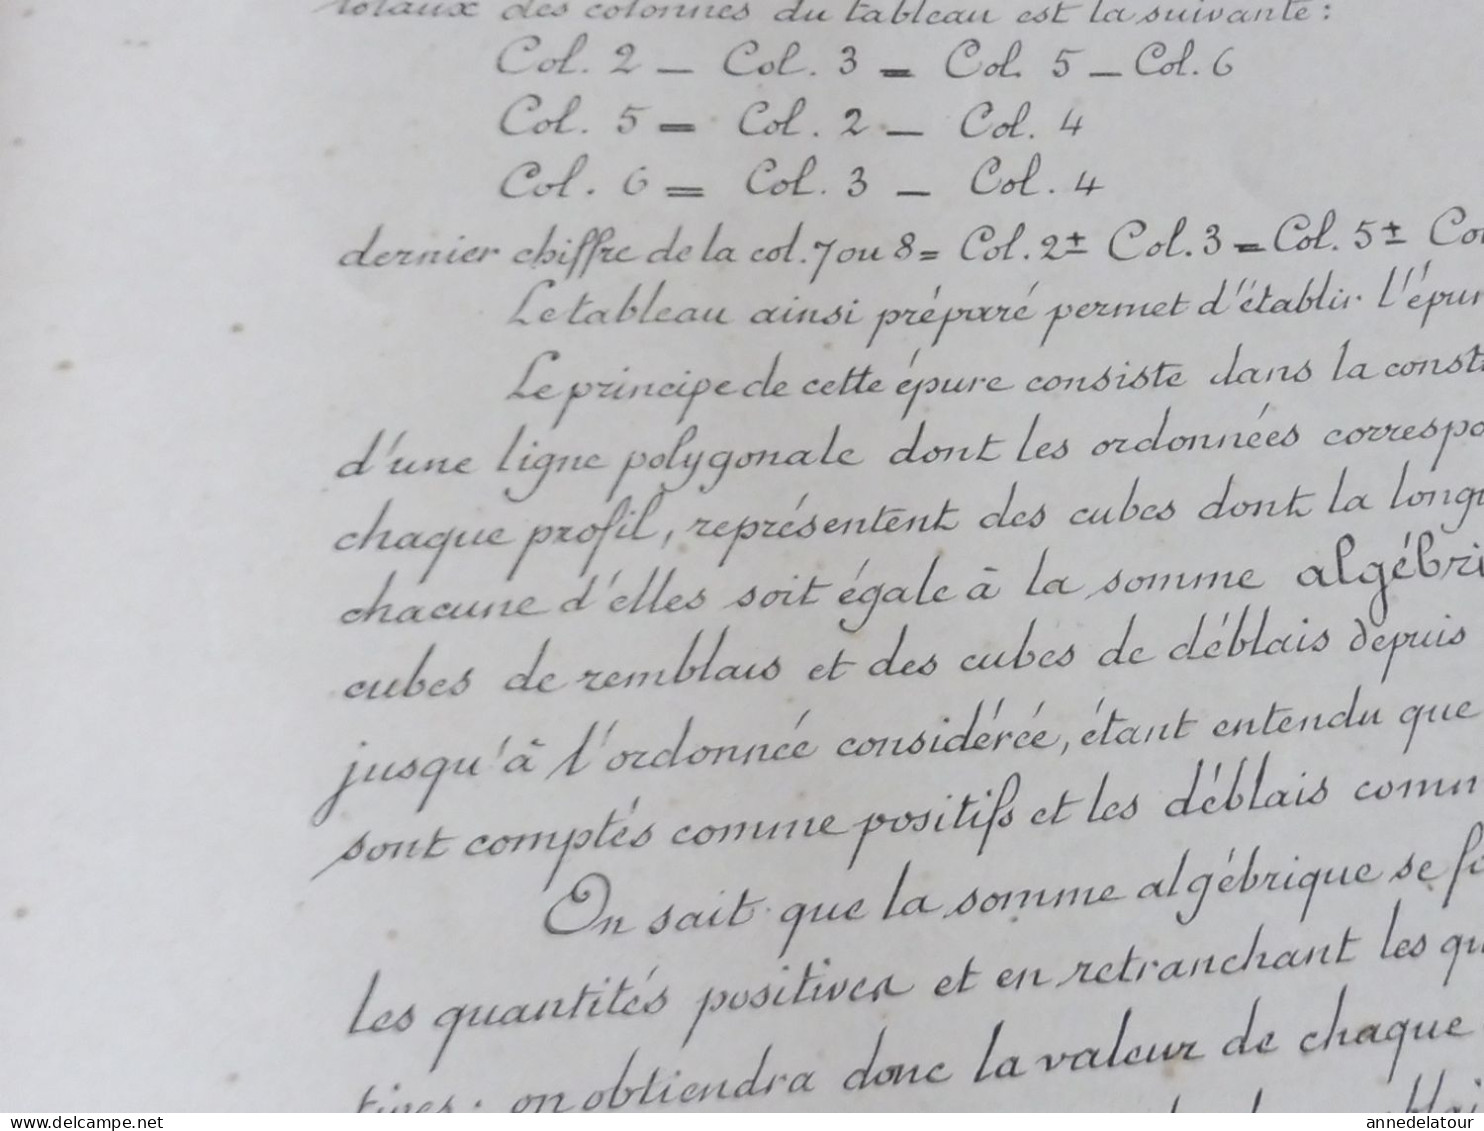 totaux des colonnes du tableau est la suivante :
Col. 2 — Col. 3 = Col. 5 — Col. 6
Col. 5 = Col. 2 — Col. 4
Col. 6 = Col. 3 — Col. 4
dernier chiffre de la col. 7 ou 8 = Col. 2 ± Col. 3 = Col. 5 ± Co
Le tableau ainsi préparé permet d'établir l'épur
Le principe de cette épure consiste dans la const
d'une ligne polygonale dont les ordonnées correspo
chaque profil, représentent des cubes dont la long
chacune d'elles soit égale à la somme algébri
cubes de remblais et des cubes de déblais depuis
jusqu'à l'ordonnée considérée, étant entendu que
sont comptés comme positifs et les déblais comm
On sait que la somme algébrique se f
les quantités positives et en retranchant les qu
tives. on obtiendra donc la valeur de chaque
delcampe.net
annedelatour